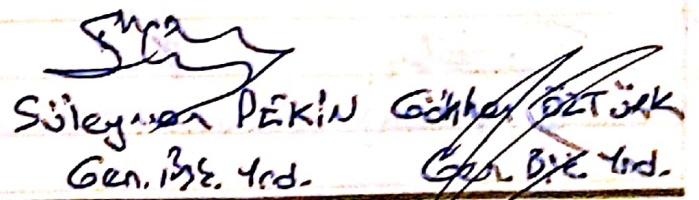 Süleyman PEKİN Gökhan ÖZTÜRK
Gen. Bşk. Yrd. Gen. Bşk. Yrd.